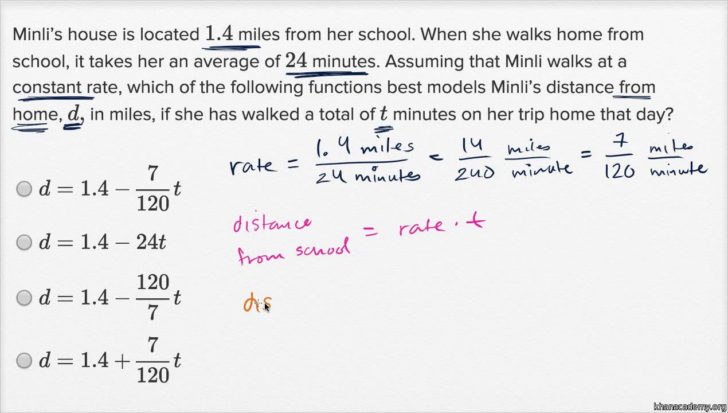 Minli's house is located 1.4 miles from her school. When she walks home from
school, it takes her an average of 24 minutes. Assuming that Minli walks at a
constant rate, which of the following functions best models Minli's distance from
home, d, in miles, if she has walked a total of t minutes on her trip home that day?
rate = 1.4 miles / 24 minutes = 14 / 240 miles / minute = 7 / 120 miles / minute
d = 1.4 − 7/120 t
distance
from school = rate · t
d = 1.4 − 24t
d = 1.4 − 120/7 t
dis
d = 1.4 + 7/120 t
khanacademy.org